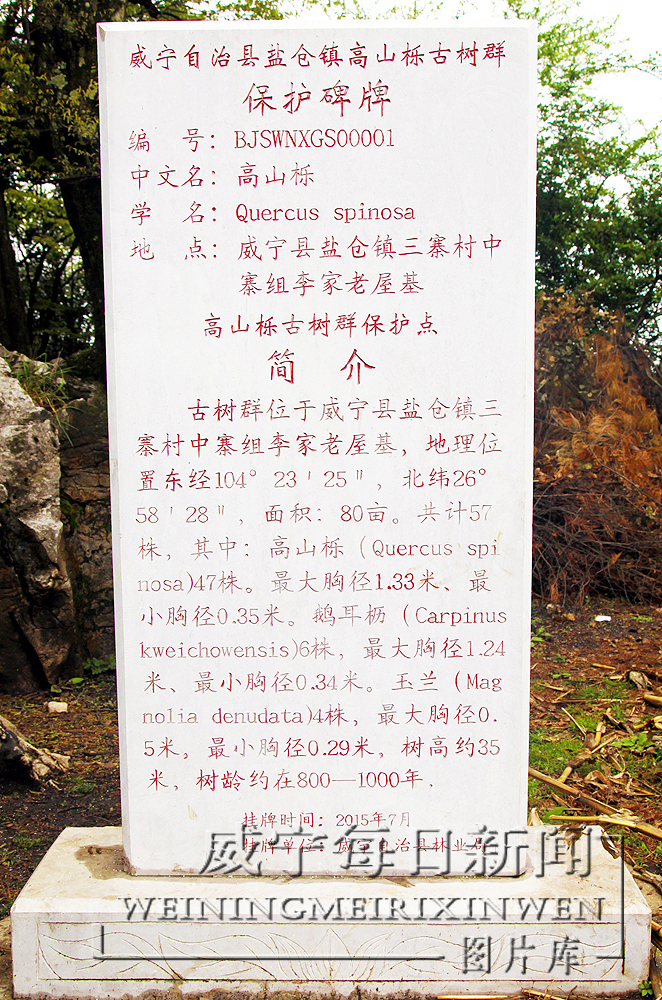 威宁自治县盐仓镇高山栎古树群
保护碑牌
编 号：BJSWNXGS00001
中文名：高山栎
学 名：Quercus spinosa
地 点：威宁县盐仓镇三寨村中
寨组李家老屋基
高山栎古树群保护点
简 介
古树群位于威宁县盐仓镇三
寨村中寨组李家老屋基，地理位
置东经104°23′25″，北纬26°
58′28″，面积：80亩。共计57
株，其中：高山栎（Quercus spi
nosa)47株。最大胸径1.33米、最
小胸径0.35米。鹅耳枥（Carpinus
kweichowensis)6株，最大胸径1.24
米、最小胸径0.34米。玉兰（Mag
nolia denudata)4株，最大胸径0.
5米，最小胸径0.29米，树高约35
米，树龄约在800—1000年．
挂牌时间：2015年7月
挂牌单位：威宁自治县林业局
威宁每日新闻
WEININGMEIRIXINWEN
图片库